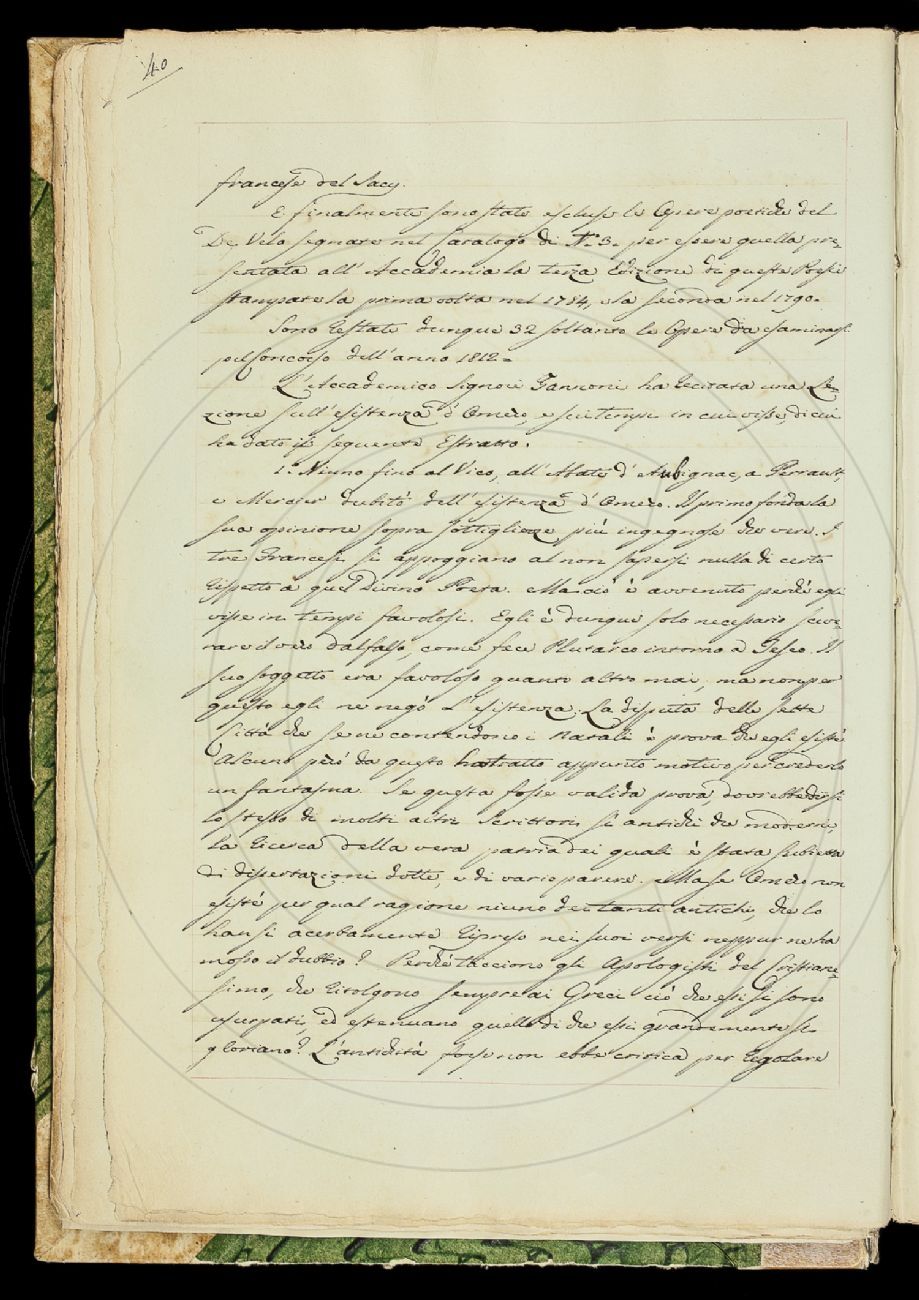 40
francese del Sacy.
E finalmente sono state escluse le Opere poetiche del
De Velo segnate nel Catalogo di N.° 3. per essere quella pre-
sentata all'Accademia la terza Edizione di queste Poesie
stampate la prima volta nel 1784, e la seconda nel 1790.
Sono restate dunque 32 soltanto le Opere da esaminarsi
pel Concorso dell'anno 1812.
L'Accademico Signor Zannoni ha recitata una Le-
zione sull'esistenza d'Omero, e sui tempi in cui visse, di cui
ha dato il seguente Estratto.
1.° Niuno fino al Vico, all'Abate d'Aubignac, a Perrault,
e Mercier dubitò dell'esistenza d'Omero. Il primo fonda la
sua opinione sopra sottigliezze più ingegnose che vere. I
tre Francesi si appoggiano al non sapersi nulla di certo
rispetto a quel Divino Poeta. Ma ciò è avvenuto perchè egli
visse in tempi favolosi. Egli è dunque solo necessario seve-
rare il vero dal falso, come fece Plutarco intorno a Teseo. Il
suo soggetto era favoloso quanto altro mai, ma non per
questo egli ne negò l'esistenza. La disputa delle sette
Città che se ne contendono i Natali è prova che egli esistè
Alcuno però da questo ha tratto appunto motivo per crederlo
un fantasma. Se questa fosse valida prova, dovrebbe dirsi
lo stesso di molti altri Scrittori sì antichi che moderni,
la ricerca della vera patria dei quali è stata subietto
di dissertazioni dotte, e di vario parere. Ma se Omero non
esistè per qual ragione niuno dei tanti antichi, che lo
hanno sì acerbamente ripreso nei suoi versi neppur ne ha
mosso il dubbio? Perchè tacciono gli Apologisti del Cristiane-
simo, che ritolgono sempre ai Greci ciò che essi si sono
usurpati, ed estenuano quello di che essi grandemente si
gloriano? L'antichità forse non ebbe critica per regolare